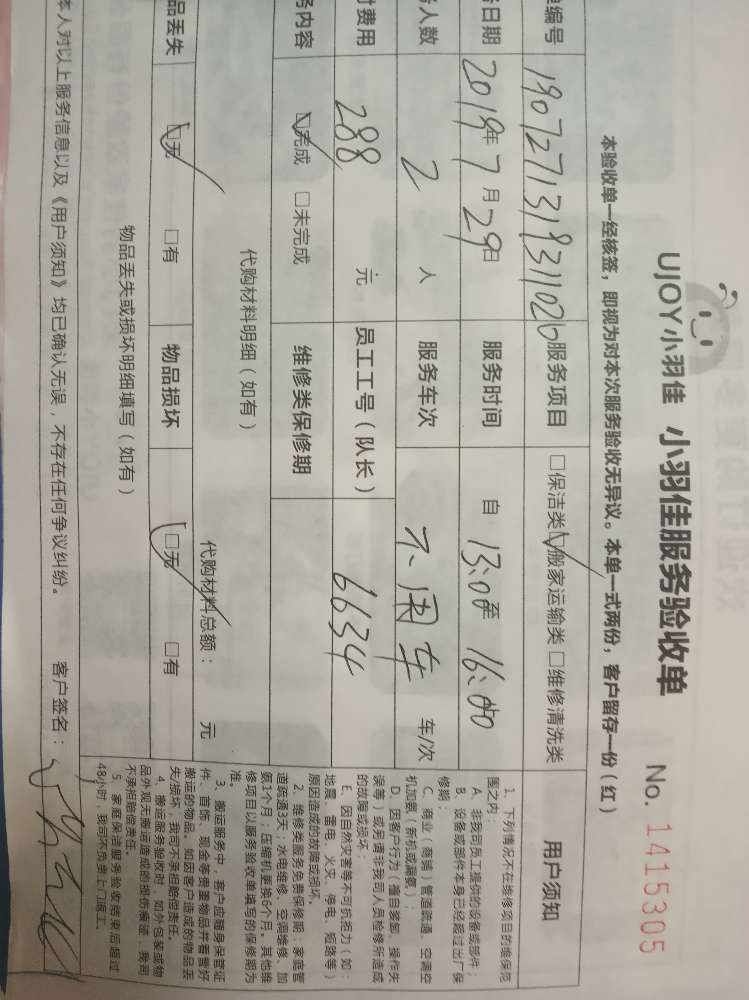 UJOY小羽佳 小羽佳服务验收单 No. 1415305
本验收单一经核签，即视为对本次服务验收无异议。本单一式两份，客户留存一份（红）
编号 服务项目 □保洁类 ☑搬家运输类 □维修清洗类
日期 2019年7月29日 服务时间 自 13:00至 16:00
人数 2 人 服务车次 不用车 车/次
费用 288 元 员工工号（队长） 6634
务内容 ☑完成 □未完成 维修类保修期
代购材料明细（如有）
代购材料总额： 元
品丢失 ☑无 □有 物品损坏 ☑无 □有
物品丢失或损坏明细填写（如有）
本人对以上服务信息以及《用户须知》均已确认无误，不存在任何争议纠纷。 客户签名：
用户须知
1、下列情况不在维修项目的维保范
围之内：
A、非我司员工提供的设备或部件；
B、设备或部件本身已经超过出厂保
修期；
C、商业（商铺）管道疏通、空调充
机加氨（新机或漏氨）；
D、因客户行为（擅自装卸、操作失
误等）或另请非我司人员检修所造成
的故障或损坏；
E、因自然灾害等不可抗拒力（如：
地震、雷电、火灾、停电、短路等）
原因造成的故障或损坏。
2、维修类服务免费保修期：家庭管
道疏通3天；水电维修、空调维修、加
氨1个月；压缩机更换6个月。其他维
修项目以服务验收单填写的保修期为
准。
3、搬运服务中，客户应随身保管证
件、首饰、现金等贵重物品并看管好
搬运的物品。如因客户造成的物品丢
失/损坏，我司不承担赔偿责任。
4、搬运服务验收时，如外包装或物
品外观无搬运造成的损伤痕迹，我司
不承担赔偿责任。
5、家庭保洁服务验收结束后超过
48小时，我司不负责上门返工。